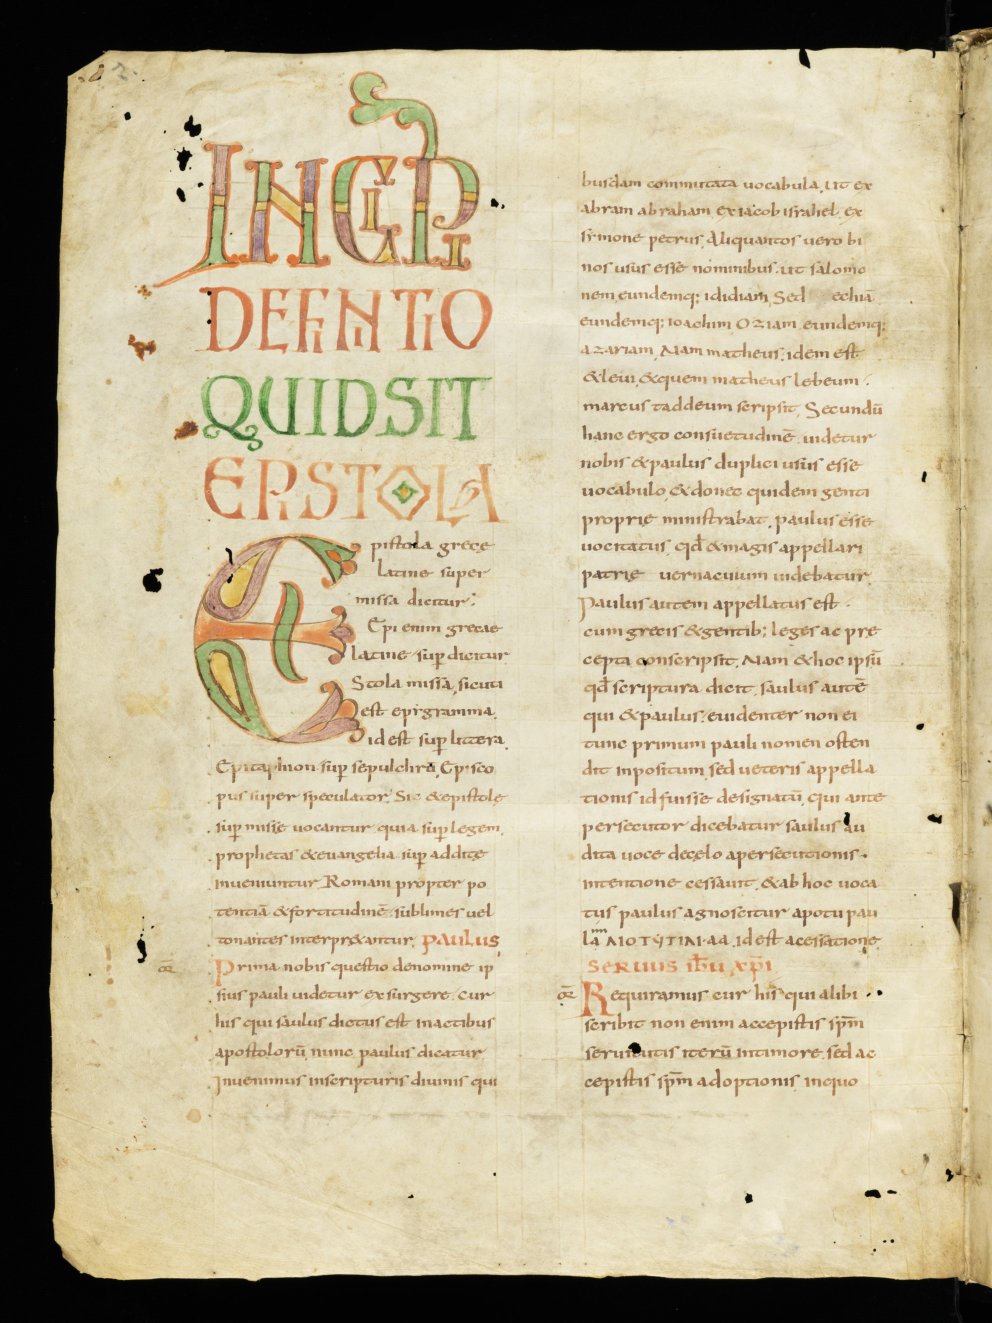 INCIPI
DEFINITIO
QUID SIT
EPISTOLA
Epistola grece
latine super
missa dicitur;
Epi enim grecae
latine sup̄ dicitur
Stola missa, sicuti
est epigramma.
id est sup̄ littera.
Epitaphion sup̄ sepulchra, Episco
pus super speculator, Sic & epistole
sup̄ misse uocantur quia sup̄ legem,
prophetas & euangelia sup̄ addite
inueniuntur. Romani propter po
tentiā & fortitudinē, sublimes uel
tonantes interpr&antur, PAULUS
Prima nobis questio denomine ip
sius pauli uidetur exsurgere, cur
his qui saulus dictus est inactibus
apostolorū, nunc paulus dicatur
Inuenimus inscripturis diuinis qui
busdam commutata uocabula, ut ex
abram abraham, ex iacob israhel, ex
symone petrus, Aliquantos uero bi
nos usus esse nominibus, ut salomo
nem, eundemq; ididiam, Sed echiā
eundemq; ioachim, Oziam, eundemq;
azariam, Nam matheus, idem est
& leui, & quem matheus lebeum
marcus taddeum scripsit, Secundū
hanc ergo consuetudinē, uidetur
nobis & paulus duplici usus esse
uocabulo, & donec quidem genti
proprie ministrabat, paulus esse
uocitatus, qd̄ & magis appellari
patrie uernaculum uidebatur,
Paulus autem appellatus est
cum grecis & gentib; leges ac pre
cepta conscripsit, Nam & hoc ipsū
qd̄ scriptura dicit, saulus autē
qui & paulus, euidenter non ei
tunc primum pauli nomen osten
dit inpositum, sed ueteris appella
tionis id fuisse designatū, qui ante
persecutor dicebatur saulus au
dita uoce decelo apersecutionis
intentione cessauit, & ab hoc uoca
tus paulus agnoscitur apotu pau
id est acessatione
SERUUS IH̄U XP̄I
Requiramus cur his qui alibi
scribit non enim accepistis sp̄m
seruitutis iterū intimore, sed ac
cepistis sp̄m adoptionis, inquo